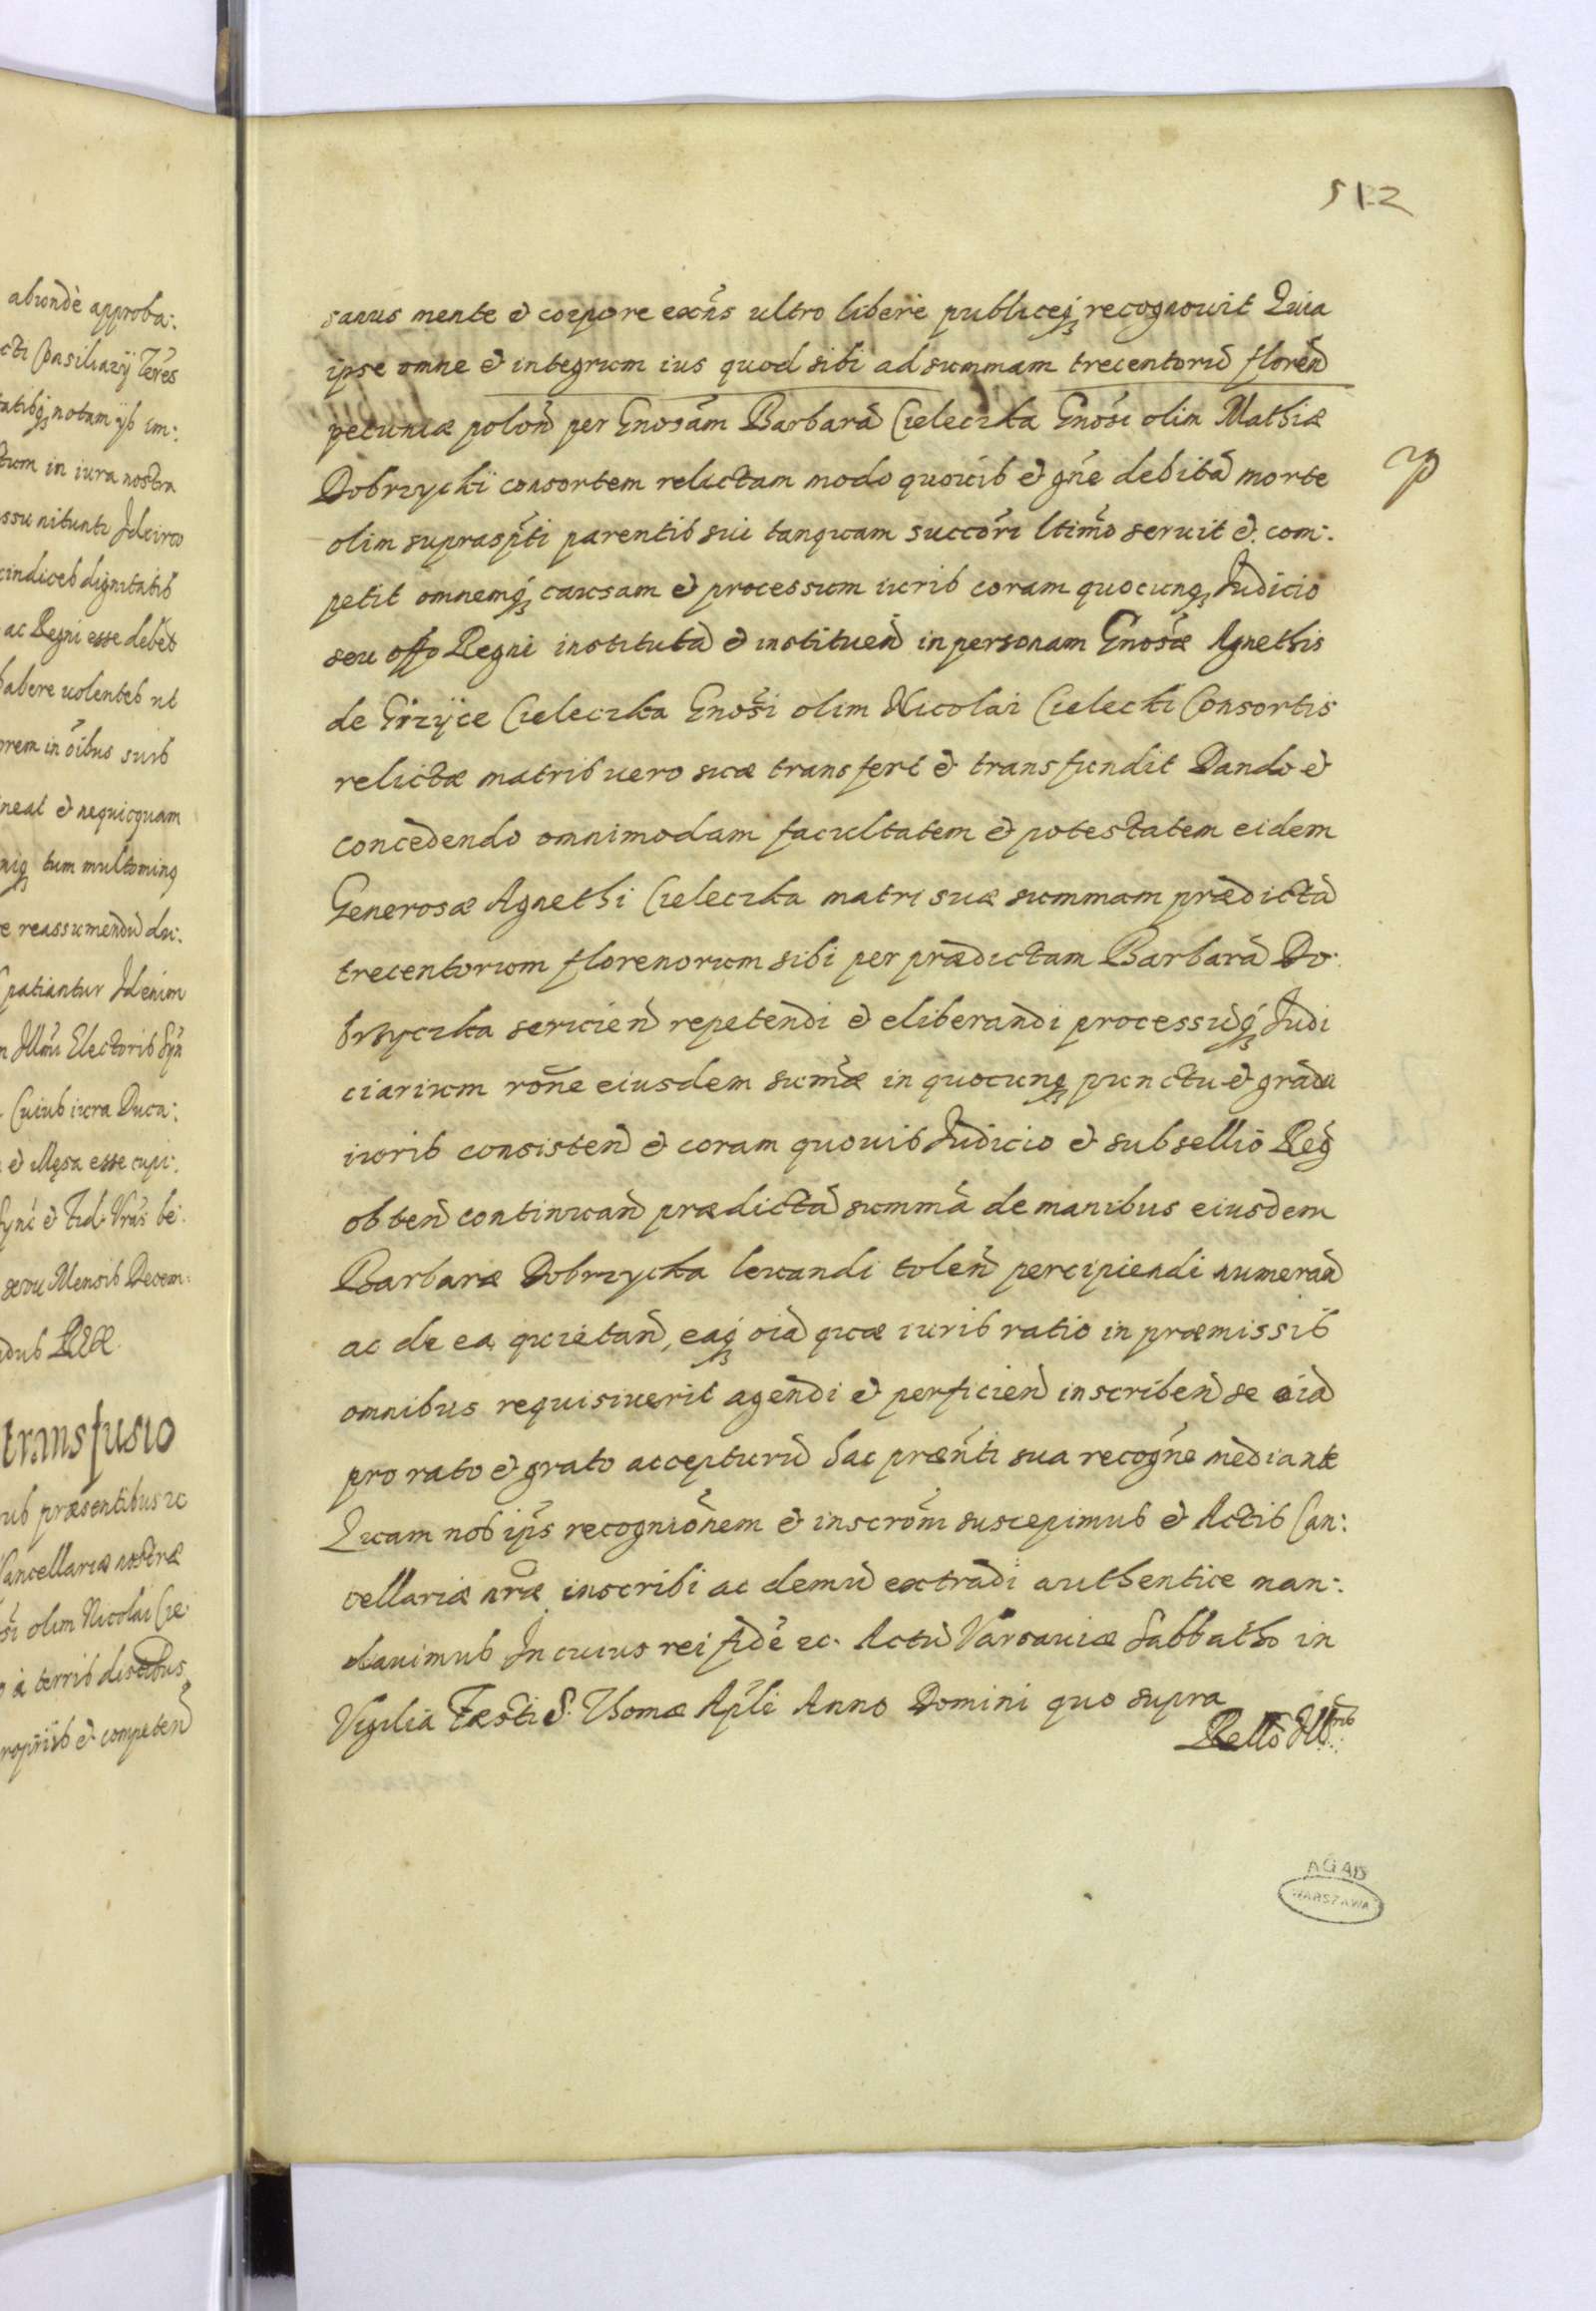 512
abunde approba:
cti Consiliarij Tĕres
tatibq notam ijs im:
tum in iura nostra
ssu nitunti Idcirco
indices dignitatis
ac Regni esse debet
habere uolentes ut
orem in oibus suis
neat et nequicquam
niq tum multominq
e reassumendũ du:
patiantur Id enim
n Illmi Electoris Syn
Cuius iura Duca:
et Mgsa esse cupi:
Synć et Fid. Vrãs be:
Mensis Decem:
transfusio
ub præsentibus ec
Cancellariæ nostræ
si olim Nicolai Cie:
a terris distibus
ropriis et competeñ
sanus mente et corpore exñs ultro libere publiceq recognouit Quia
ipse omne et integrum ius quod sibi ad summam trecentorũ floreñ
pecuniæ poloñ per Gnosam Barbarã Cieleczka Gnosi olim Mathiæ
Dobrzycki consortem relictam modo quouis et gñe debitã morte
olim supraspti parentis sui tanquam succori ltimo seruit et com:
petit omnemq causam et processum iuris coram quocunq Iudicio
seu offo Regni institutã et institueñ in personam Gnosæ Agnethis
de Grzyce Cieleczka Gnosi olim Nicolai Cielecki Consortis
relictæ matris uero suæ transfert et transfundit Dando et
concedendo omnimodam facultatem et potestatem eidem
Generosæ Agnethi Cieleczka matri suæ summam prædictã
trecentorum florenorum sibi per prædictam Barbarã Do:
brzyczka seruieñ repetendi et eliberandi processũq Iudi
ciarium rõne eiusdem sumæ in quocunq punctu et gradu
iuris consisteñ et coram quouis Iudicio et subsellio Reg
obteñ continuañ prædictã summã de manibus eiusdem
Barbaræ Dobrzycka leuandi toleñ percipiendi numerañ
ac de ea quietañ, eaq oiã quæ iuris ratio in præmissis
omnibus requisiuerit agendi et perficieñ inscribeñ se oiã
pro rato et grato accepturũ hac præñti sua recogñe mediante
Quam nos ips recognionem et inscrom suscepimus et Actis Can:
cellariæ nræ inscribi ac demũ extradi authentice man:
dauimus In cuius rei fidẽ ec. Actũ Varsauiæ Sabbatho in
Vigilia Festi S. Thomæ Apli Anno Domini quo supra
AGAD
WARSZAWA